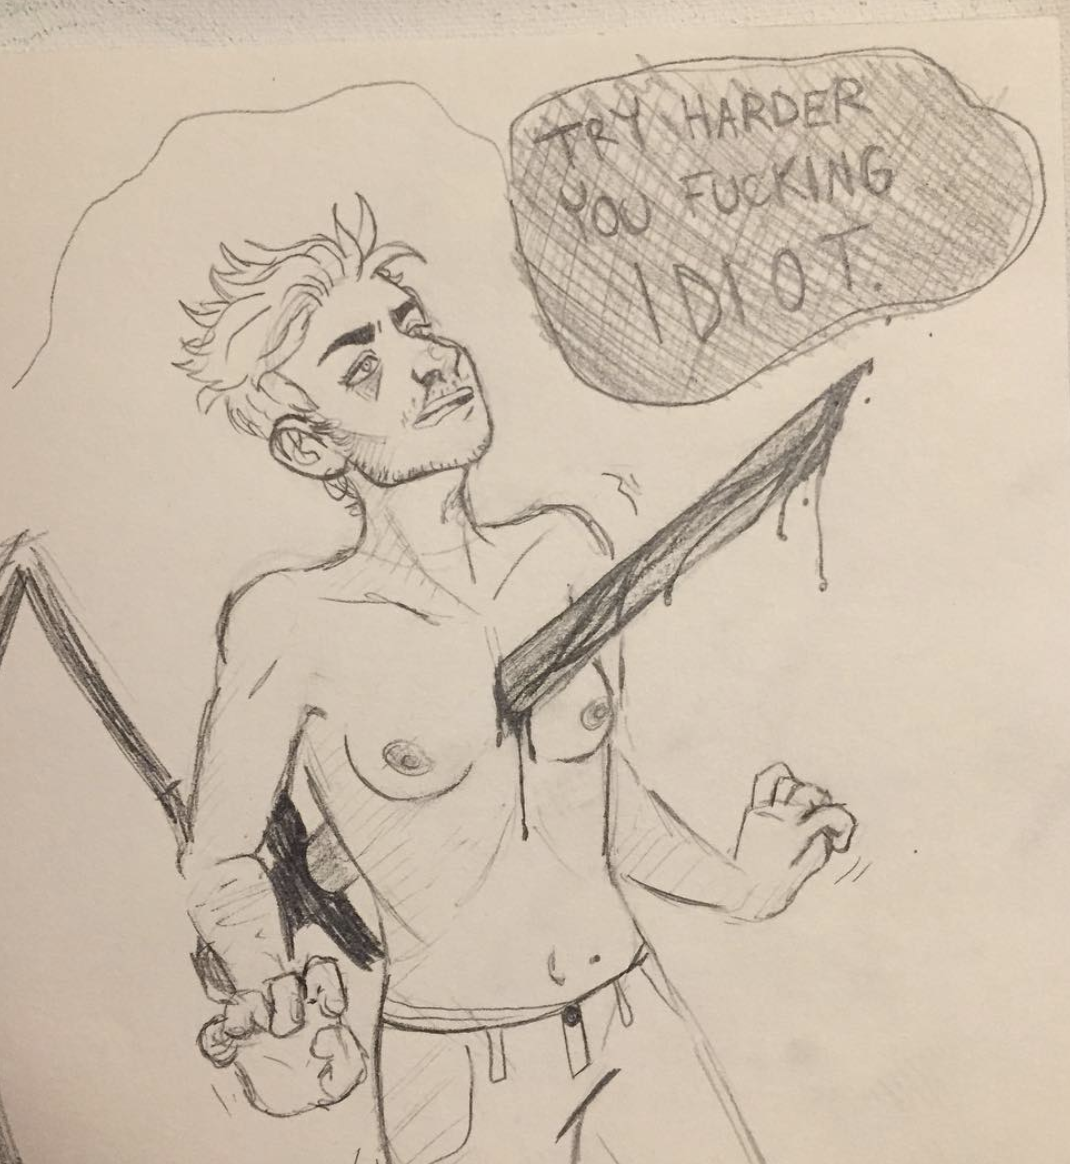 TRY HARDER
YOU FUCKING
IDIOT.